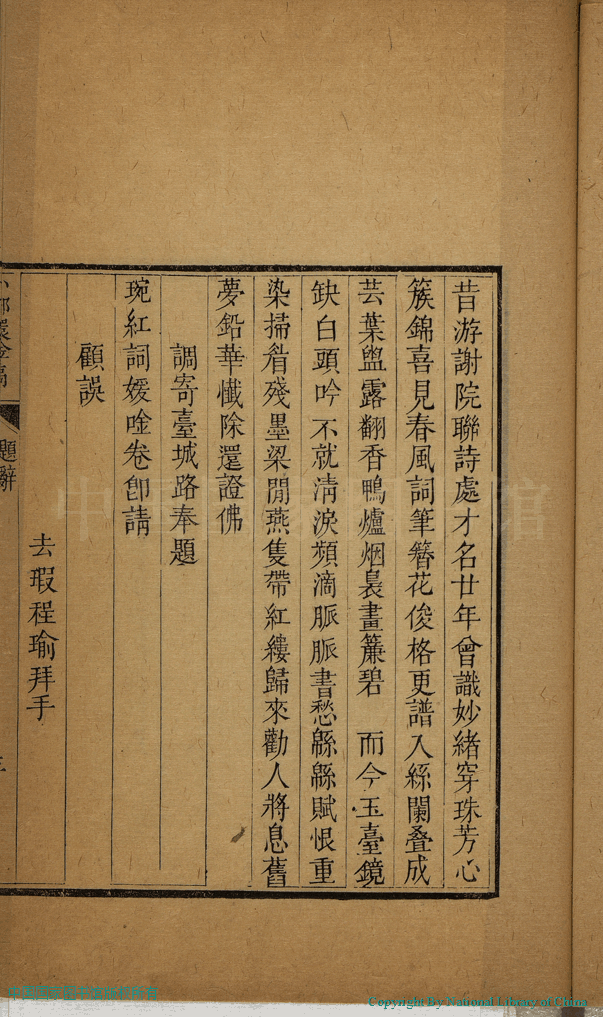 昔游謝院聯詩處才名廿年曾識妙緒穿珠芳心
簇錦喜見春風詞筆簪花俊格更譜入絲闌叠成
芸葉盥露翻香鴨爐烟裊畫簾碧　而今玉臺鏡
缺白頭吟不就淸淚頻滴脈脈書愁緜緜賦恨重
染掃眉殘墨梁閒燕隻帶紅縷歸來勸人將息舊
夢鉛華懺除還證佛
調寄臺城路奉題
琬紅詞媛唫卷卽請
顧誤
去瑕程瑜拜手
題辭
中國國家圖書館
Copyright By National Library of China